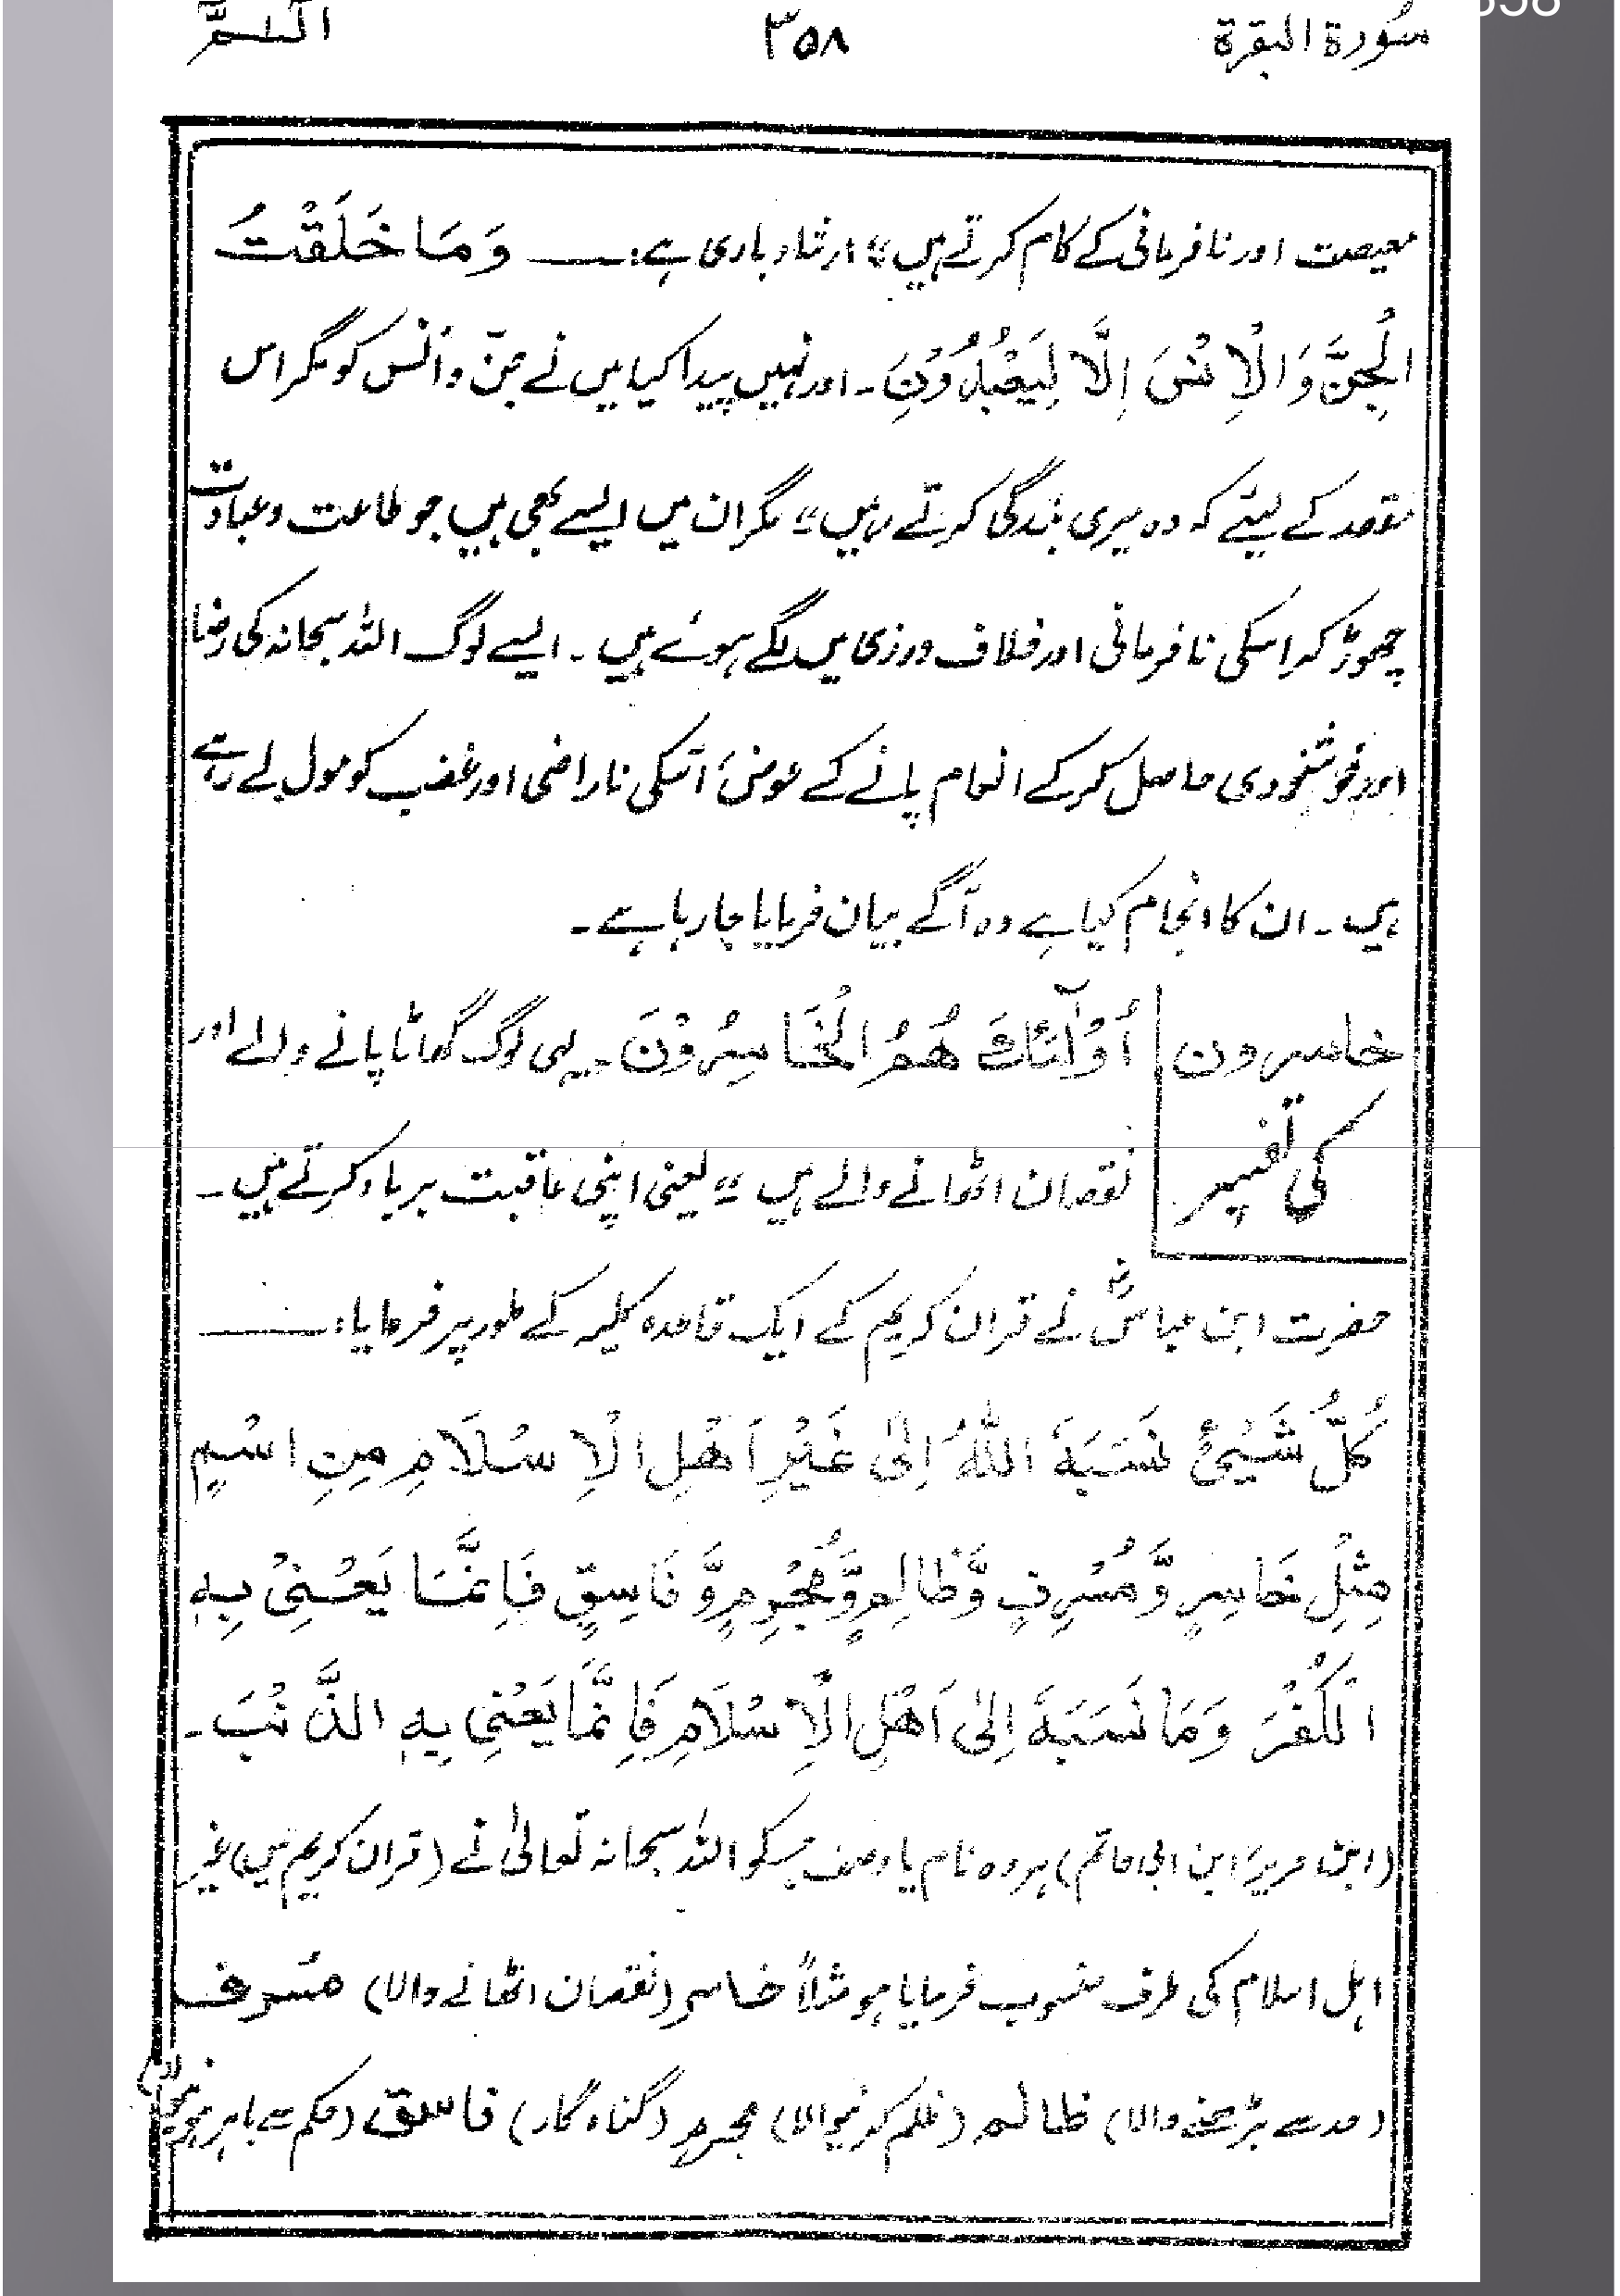 سُورة البقرة ۳۵۸ الٓـمّٓ
معیصت اور نافرمانی کے کام کرتے ہیں“ ارشاد باری ہے:ــــ وَمَا خَلَقْتُ
الْجِنَّ وَالْاِنْسَ اِلَّا لِیَعْبُدُوْنِ ۔ اور نہیں پیدا کیا میں نے جنّ و اُنس کو مگر اس
مقصد کے لیئے کہ وہ میری بندگی کرتے رہیں“ مگر ان میں ایسے بھی ہیں جو طاعت و عبادت
چھوڑ کر اسکی نافرمانی اور خلاف ورزی میں لگے ہوئے ہیں ۔ ایسے لوگ اللہ سبحانہ کی رضا
اور خوشنودی حاصل کرکے انعام پانے کے عوض، اُسکی ناراضی اور غضب کو مول لے رہے
ہیں ۔ ان کا انجام کیا ہے وہ آگے بیان فرمایا جا رہا ہے ۔
خاسرون اُوْلٰٓئِكَ هُمُ الْخَاسِرُوْنَ ۔ یہی لوگ گھاٹا پانے والے اور
کی تفسیر نقصان اٹھانے والے ہیں“ یعنی اپنی عاقبت برباد کرتے ہیں ۔
حضرت ابن عباسؓ نے قران کریم کے ایک قاعدہ کلیہ کے طور پر فرمایا:ــــ
كُلُّ شَیْئٍ نَسَبَهُ اللّٰهُ اِلٰى غَیْرِ اَهْلِ الْاِسْلَامِ مِنِ اسْمٍ
مِثْلِ خَاسِرٍ وَّمُسْرِفٍ وَّظَالِمٍ وَّمُجْرِمٍ وَّفَاسِقٍ فَاِنَّمَا یَعْنِیْ بِهِ
الْكُفْرَ وَمَا نَسَبَهُ اِلٰى اَهْلِ الْاِسْلَامِ فَاِنَّمَا یَعْنِیْ بِهِ الذَّنْبَ ۔
(ابن جریر، ابن ابی حاتم) ہر وہ نام یا وصف جسکو اللہ سبحانہ تعالیٰ نے (قران کریم میں) غیر
اہل اسلام کی طرف منسوب فرمایا ہو مثلاً خاسر (نقصان اٹھانے والا) مسرف
(حد سے بڑھنے والا) ظالم (ظلم کرنیوالا) مجرم (گناہ گار) فاسق (حکم سے باہر ہونیوالا)